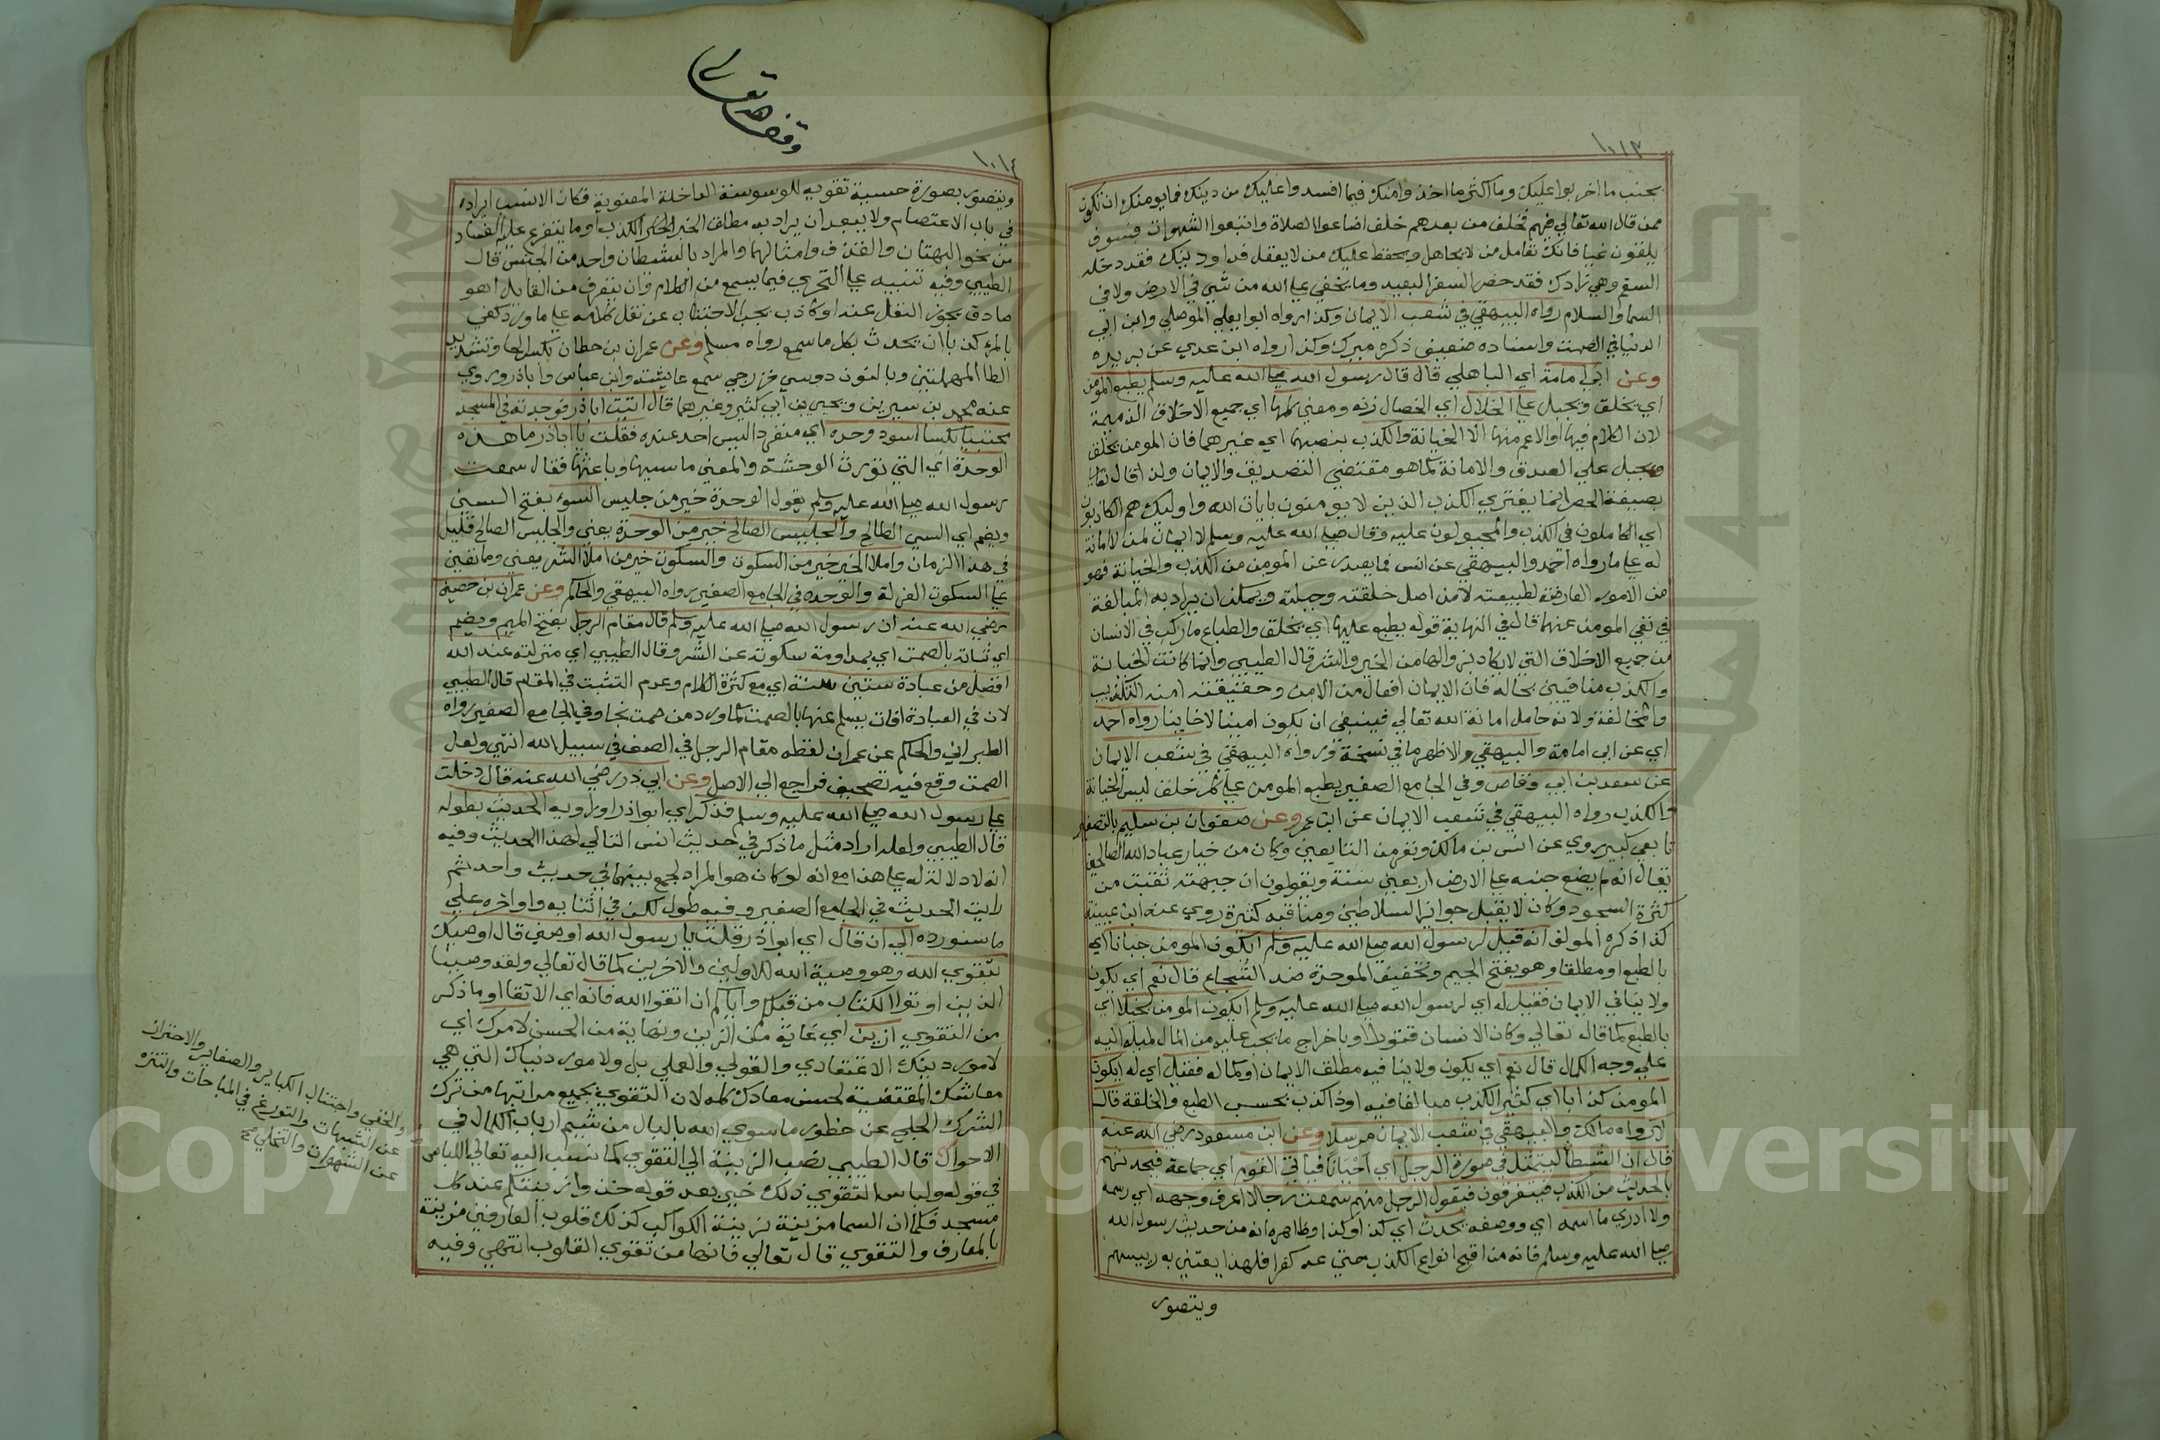 ١٠١٣
بجنب ما اخربوا عليك وما اكثر ما اخذ وامنك فيما افسد واعليك من دينك فما يومنك ان تكون
ممن قال الله تعالى فيهم فخلف من بعدهم خلف اضاعوا الصلاة واتبعوا الشهوات فسوف
يلقون غيا فانك تعامل من لا يجاهل ويحفظ عليك من لا يغفل فداو دينك فقد دخله
السقم وهيي زادك فقد حضر السفر البعيد وما يخفى على الله من شي في الارض ولا في
السما والسلام رواه البيهقي في شعب الايمان وكذا رواه ابو يعلي الموصلي وابن ابي
الدنيا في الصمت واسناده ضعيف ذكره ميرك وكذا رواه ابن عدي عن بريده
وعن ابي امامة اي الباهلي قال قال رسول الله صلى الله عليه وسلم يطبع المومن
اي يخلق ويجبل على الخلال اي الخصال زنه ومعنى كلها اي جميع الاخلاق الذميمة
لان الكلام فيها او الاعم منها الا الخيانة والكذب بنصبهما اي غيرهما فان المومن يخلق
ويجبل علي الصدق والامانة كما هو مقتضي التصديق والايمان ولذا قال تعالى
بصيغة الحصر انما يفتري الكذب الذين لا يومنون بايات الله واوليك هم الكاذبون
اي الكاملون في الكذب والمجبولون عليه وقال صلى الله عليه وسلم لا ايمان لمن لا امانة
له على ما رواه احمد والبيهقي عن انس فما يصدر عن المومن من الكذب والخيانة فهو
من الامور العارضة لطبيعته لا من اصل خلقته وجبلته ويمكن ان يراد به المبالغة
في نفي المومن عنهما قال في النهاية قوله يطبع عليها اي يخلق والطباع ما ركب في الانسان
من جميع الاخلاق التي لا يكاد يزاولها من الخير والشر قال الطيبي وانما كانت الخيانة
والكذب منافيين بحاله فان الايمان افعال من الامن وحقيقته امنه التكذيب
والمخالفة ولانه حامل امانة الله تعالي فينبغي ان يكون امينا لا خاينا رواه احمد
اي عن ابي امامة والبيهقي والاظهر ما في نسخة ورواه البيهقي في شعب الايمان
عن سعد بن ابي وقاص وفي الجامع الصغير يطبع المومن على كل خلق ليس الخيانة
والكذب رواه البيهقي في شعب الايمان عن ابن عمر وعن صفوان بن سليم بالتصغير
تابعي كبير روي عن انس بن مالك ونفر من التابعين وكان من خيار عباد الله الصالحين
يقال انه لم يضع جنبه على الارض اربعين سنة ويقولون ان جبهته ثقبت من
كثرة السجود وكان لا يقبل جوايز السلاطين ومناقبه كثيرة روي عنه ابن عيينة
كذا ذكره المولف انه قيل لرسول الله صلى الله عليه وسلم ايكون المومن جبانا اي
بالطبع او مطلقا وهو بفتح الجيم وتخفيف الموحدة ضد الشجاع قال نعم اي يكون
ولا ينافي الايمان فقيل له اي لرسول الله صلى الله عليه وسلم ايكون المومن بخيلا اي
بالطبع كما قال تعالي وكان الانسان قتورا او باخراج ما يجب عليه من المال لميله اليه
على وجه الكمال قال نعم اي يكون ولا ينافيه مطلق الايمان او كماله فقيل اي له ايكون
المومن كذابا اي كثير الكذب مبالغا فيه او ذا كذب بحسب الطبع والخلقة قال
لا رواه مالك والبيهقي في شعب الايمان مرسلا وعن ابن مسعود رضي الله عنه
قال ان الشيطان ليتمثل في صورة الرجل اي احيانا فياتي القوم اي جماعة فيحدثهم
بالحديث من الكذب فيتفرقون فيقول الرجل منهم سمعت رجلا اعرف وجهه اي رسمه
ولا ادري ما اسمه اي ووصفه يحدث اي كذا وكذا وظاهره انه من حديث رسول الله
صلى الله عليه وسلم فانه من اقبح انواع الكذب حتى عد كفرا فلهذا يعتني به رييسهم
ويتصور
وقف لله تعالى
١٠١٤
ويتصور بصورة حسية تقويه للوسوسة الداخلة المعنوية فكان الانسب ايراده
في باب الاعتصام ولا يبعد ان يراد به مطلق الخبر الكذب وما يتفرع عليه الفساد
من نحو البهتان والقذف وامثالهما والمراد بالشيطان واحد من الجنس قال
الطيبي وفيه تنبيه على التحري فيما يسمع من الكلام وان يتعرف من القايل اهو
صادق يجوز النقل عنه او كاذب يجب الاجتناب عن نقل كلامه على ما ورد كفى
بالمرء كذبا ان يحدث بكل ما سمع رواه مسلم وعن عمران بن حطان بكسر الحا وتشديد
الطا المهملتين وبالنون دوسي خزرجي سمع عايشة وابن عباس وابا ذر وروي
عنه محمد بن سيرين ويحيي بن ابي كثير وغيرهما قال اتيت ابا ذر فوجدته في المسجد
محتبيا بكسا اسود وحده اي منفردا ليس احد عنده فقلت يا ابا ذر ما هذه
الوحدة اي التي تورث الوحشة والمعني ما سببها وباعثها فقال سمعت
رسول الله صلى الله عليه وسلم يقول الوحدة خير من جليس السوء بفتح السين
ويضم اي السيي الطالح والجليس الصالح خير من الوحدة يعني والجليس الصالح قليل
في هذا الزمان واملا الخير خير من السكوت والسكوت خير من املا الشر يعني وما تعين
على السكوت العزلة والوحده في الجامع الصغير رواه البيهقي والحاكم وعن عمران بن حصين
رضي الله عنه ان رسول الله صلى الله عليه وسلم قال مقام الرجل بفتح الميم ويضم
اي ثباته بالصمت اي بمداومة سكوته عن الشر وقال الطيبي اي منزلته عند الله
افضل من عبادة ستين سنة اي مع كثرة الكلام وعدم التثبت في المقام قال الطيبي
لان في العبادة افات يسلم عنها بالصمت كما ورد من صمت نجا وفي الجامع الصغير رواه
الطبراني والحاكم عن عمران لفظه مقام الرجل في الصف في سبيل الله انتهى ولعل
الصمت وقع فيه تصحيف فراجع الي الاصل وعن ابي ذر رضي الله عنه قال دخلت
على رسول الله صلى الله عليه وسلم فذكر اي ابو ذر او راويه الحديث بطوله
قال الطيبي ولعله اراد مثل ما ذكر في حديث انس التالي لهذا الحديث وفيه
انه لا دلالة له على هذا مع انه لو كان هو المراد لجمع بينهما في حديث واحد ثم
رايت الحديث في الجامع الصغير وفيه طول لكن في اثنايه واواخره علي
ما سنورده الي ان قال اي ابو ذر قلت يا رسول الله اوصني قال اوصيك
بتقوي الله وهو وصية الله للاولين والاخرين كما قال تعالي ولقد وصينا
الذين اوتوا الكتاب من قبلكم واياكم ان اتقوا الله فانه اي الاتقا او ما ذكر
من التقوي ازين اي غاية من الزين ونهاية من الحسن لامرك اي
لامور دينك الاعتقادي والقولي والعملي بل ولامور دنياك التي هي
معاشك المقتضية لحسن معادك كله لان التقوي بجميع مراتبها من ترك
الشرك الجلي عن خطور ما سوي الله بالبال من شيم ارباب الكمال في
الاحوال قال الطيبي نصب الزينة الي التقوي كما نسب اليه تعالي اللباس
في قوله ولباس التقوي ذلك خير بعد قوله خذوا زينتكم عند كل
مسجد فكما ان السما مزينة بزينة الكواكب كذلك قلوب العارفين مزينة
بالمعارف والتقوي قال تعالي فانها من تقوي القلوب انتهي وفيه
والخفي واجتناب الكباير والصغاير والاحتراز
عن الشبهات والتورع في المباحات والتنزه
عن الشهوات والتخلي صح
Copyright © King Saud University